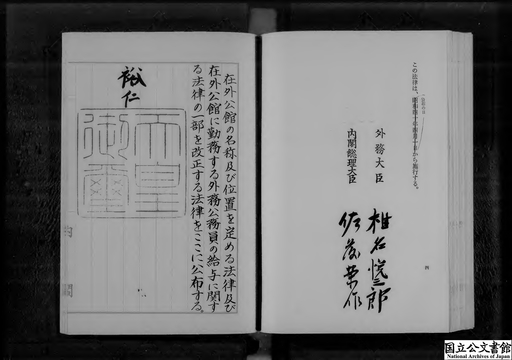 在外公館の名称及び位置を定める法律及び
在外公館に勤務する外務公務員の給与に関す
る法律の一部を改正する法律をここに公布する。
裕仁
天皇
御璽
この法律は、
から施行する。
外務大臣
椎名悦三郎
内閣総理大臣
佐藤栄作
国立公文書館
National Archives of Japan